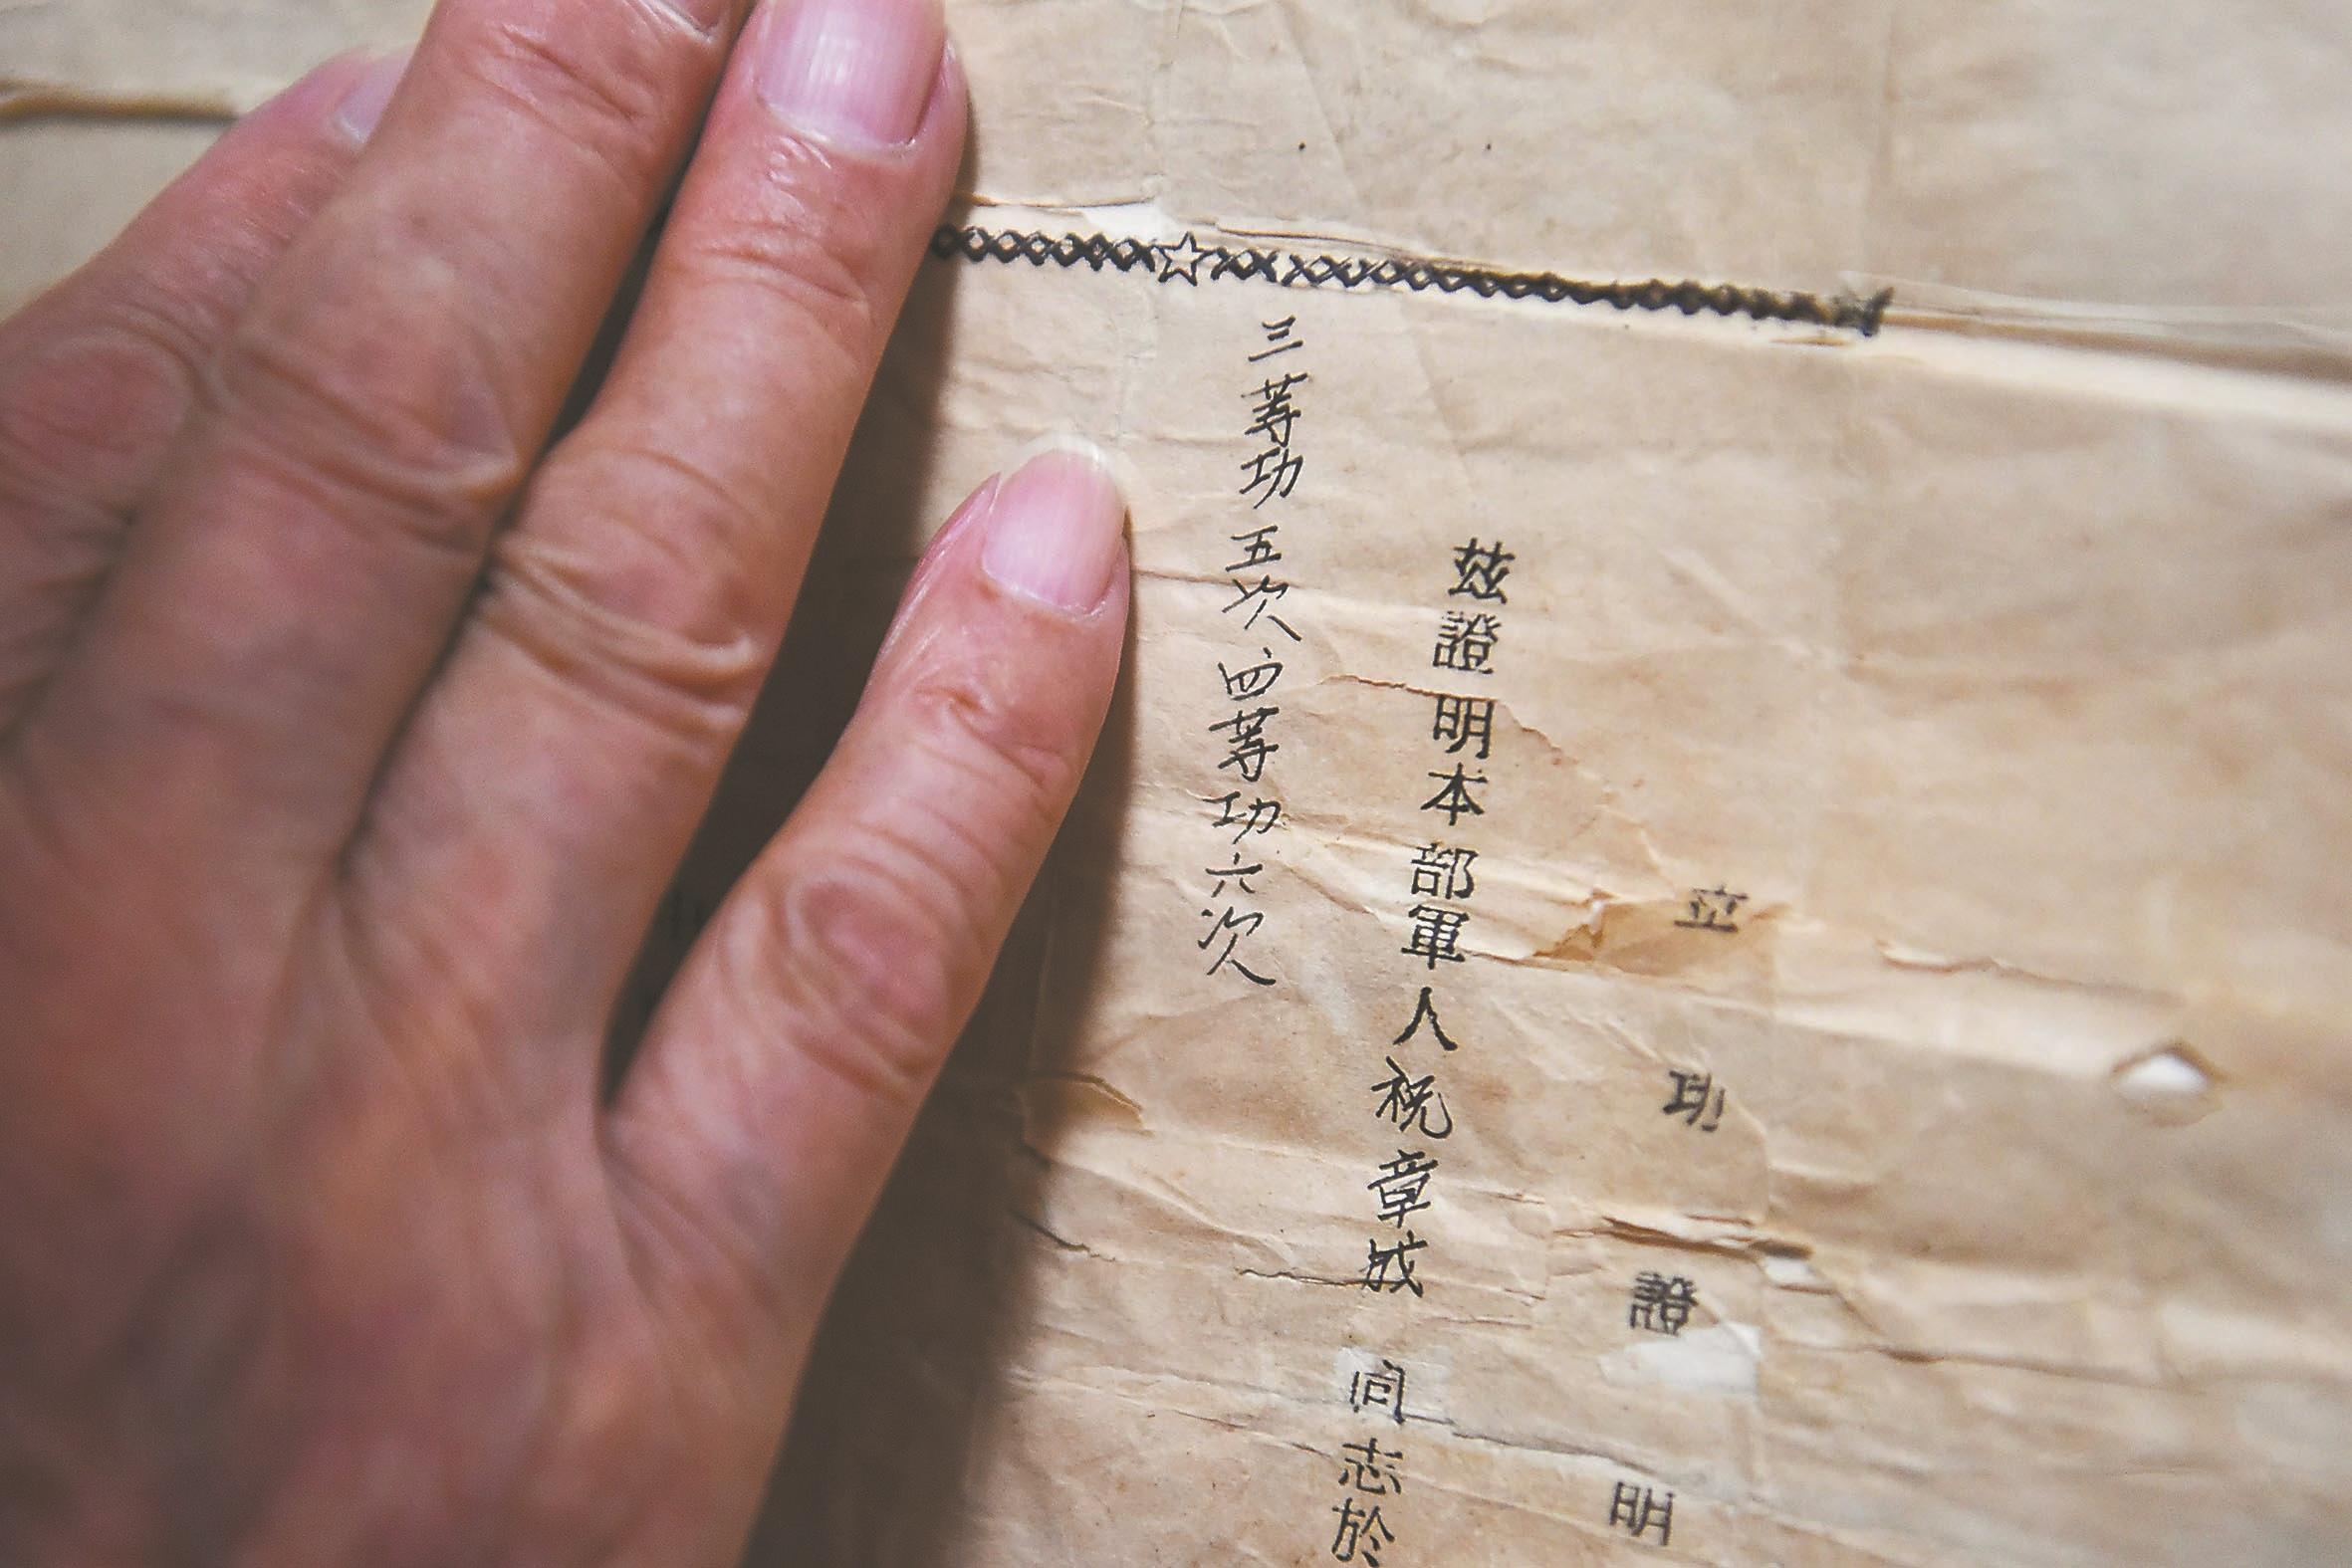 立功證明
茲證明本部軍人祝章成 同志於
三等功五次、四等功六次